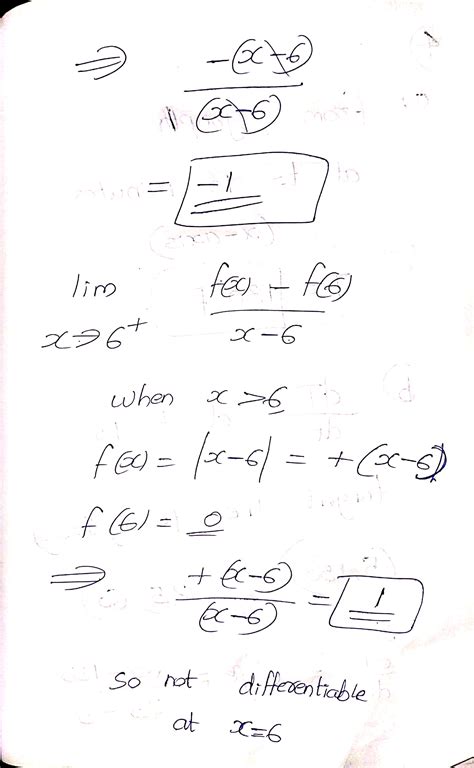 ⇒ -(x-6) / (x-6)
= -1
lim x→6⁺ f(x) - f(6) / x-6
when x > 6
f(x) = |x-6| = +(x-6)
f(6) = 0
⇒ +(x-6) / (x-6) = 1
so not differentiable
at x=6